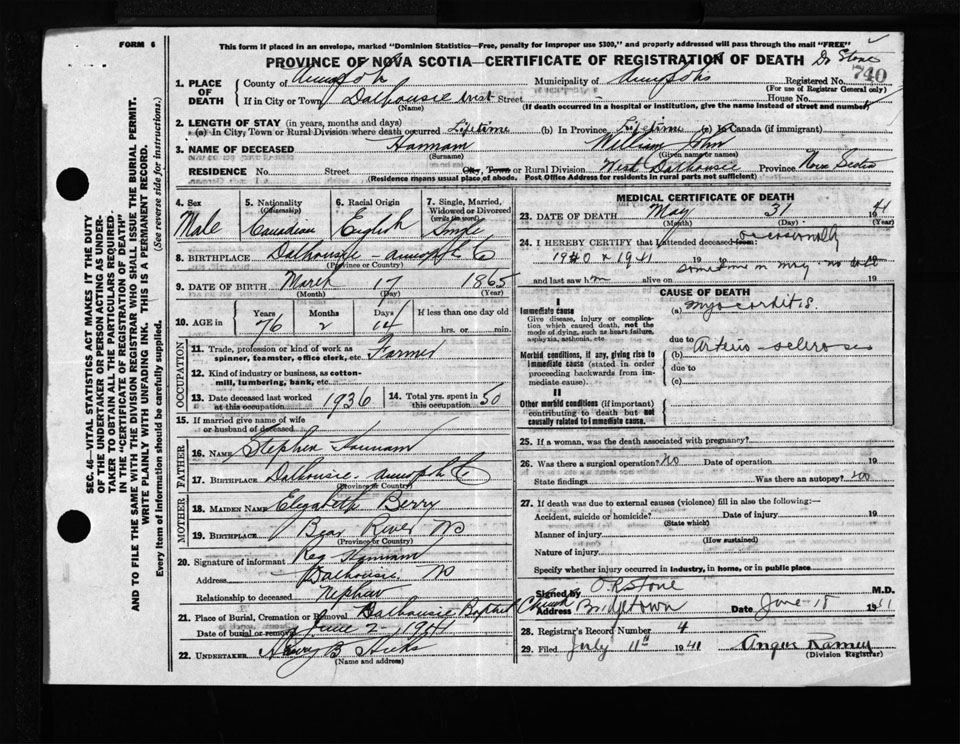 FORM 6
This form if placed in an envelope, marked "Dominion Statistics—Free, penalty for improper use $300," and properly addressed will pass through the mail "FREE"
PROVINCE OF NOVA SCOTIA—CERTIFICATE OF REGISTRATION OF DEATH
Dr Stone
740
1. PLACE OF DEATH
County of
Municipality of
Registered No.
(For use of Registrar General only)
If in City or Town Dalhousie West Street House No.
(Name) (If death occurred in a hospital or institution, give the name instead of street and number)
2. LENGTH OF STAY (in years, months and days)
(a) In City, Town or Rural Division where death occurred Lifetime (b) In Province Lifetime (c) In Canada (if immigrant)
3. NAME OF DECEASED Hannam William John
(Surname) (Given name or names)
RESIDENCE No. Street City, Town or Rural Division West Dalhousie Province Nova Scotia
(Residence means usual place of abode. Post Office Address for residents in rural parts not sufficient)
SEC. 46—VITAL STATISTICS ACT MAKES IT THE DUTY
OF THE UNDERTAKER OR PERSON ACTING AS UNDER-
TAKER TO OBTAIN ALL THE PARTICULARS REQUIRED
IN THE "CERTIFICATE OF REGISTRATION OF DEATH"
AND TO FILE THE SAME WITH THE DIVISION REGISTRAR WHO SHALL ISSUE THE BURIAL PERMIT.
WRITE PLAINLY WITH UNFADING INK. THIS IS A PERMANENT RECORD.
Every item of Information should be carefully supplied. (See reverse side for instructions.)
4. Sex
Male
5. Nationality
(Citizenship)
Canadian
6. Racial Origin
English
7. Single, Married, Widowed or Divorced
(write the word)
Single
8. BIRTHPLACE Dalhousie - Co
(Province or Country)
9. DATE OF BIRTH March 17 1865
(Month) (Day) (Year)
10. AGE in
Years 76 Months 2 Days 14 If less than one day old
hrs. or min.
OCCUPATION
11. Trade, profession or kind of work as
spinner, teamster, office clerk, etc. Farmer
12. Kind of industry or business, as cotton-
mill, lumbering, bank, etc.
13. Date deceased last worked
at this occupation 1936
14. Total yrs. spent in
this occupation 50
15. If married give name of wife
or husband of deceased
FATHER
16. NAME Stephen Hannam
17. BIRTHPLACE Dalhousie Co
(Province or Country)
MOTHER
18. MAIDEN NAME Elizabeth Berry
19. BIRTHPLACE Bear River NS
(Province or Country)
20. Signature of informant Reg Hannam
Address Dalhousie NS
Relationship to deceased nephew
21. Place of Burial, Cremation or Removal Dalhousie Baptist Church
Date of burial or removal June 2 - 1941
22. UNDERTAKER B. Hicks
(Name and address)
MEDICAL CERTIFICATE OF DEATH
23. DATE OF DEATH May 31 1941
(Month) (Day) (Year)
24. I HEREBY CERTIFY that I attended deceased from: occasionally
1940 & 1941 19 to 19
and last saw h alive on sometime in May no date 19
CAUSE OF DEATH
I
Immediate cause
Give disease, injury or complica-
tion which caused death, not the
mode of dying, such as heart failure,
asphyxia, asthenia, etc.
(a) myocarditis
due to
Morbid conditions, if any, giving rise to
immediate cause (stated in order
proceeding backwards from im-
mediate cause).
(b) Arterio-sclerosis
due to
(c)
II
Other morbid conditions (if important)
contributing to death but not
causally related to immediate cause.
25. If a woman, was the death associated with pregnancy?
26. Was there a surgical operation? No Date of operation 19
State findings Was there an autopsy? no
27. If death was due to external causes (violence) fill in also the following:—
Accident, suicide or homicide? Date of injury 19
(State which)
Manner of injury
(How sustained)
Nature of injury
Specify whether injury occurred in industry, in home, or in public place
Signed by O R Stone M.D.
Address Bridgetown Date June 18 1941
28. Registrar's Record Number 4
29. Filed July 11th 1941 Angus Ramey
(Division Registrar)